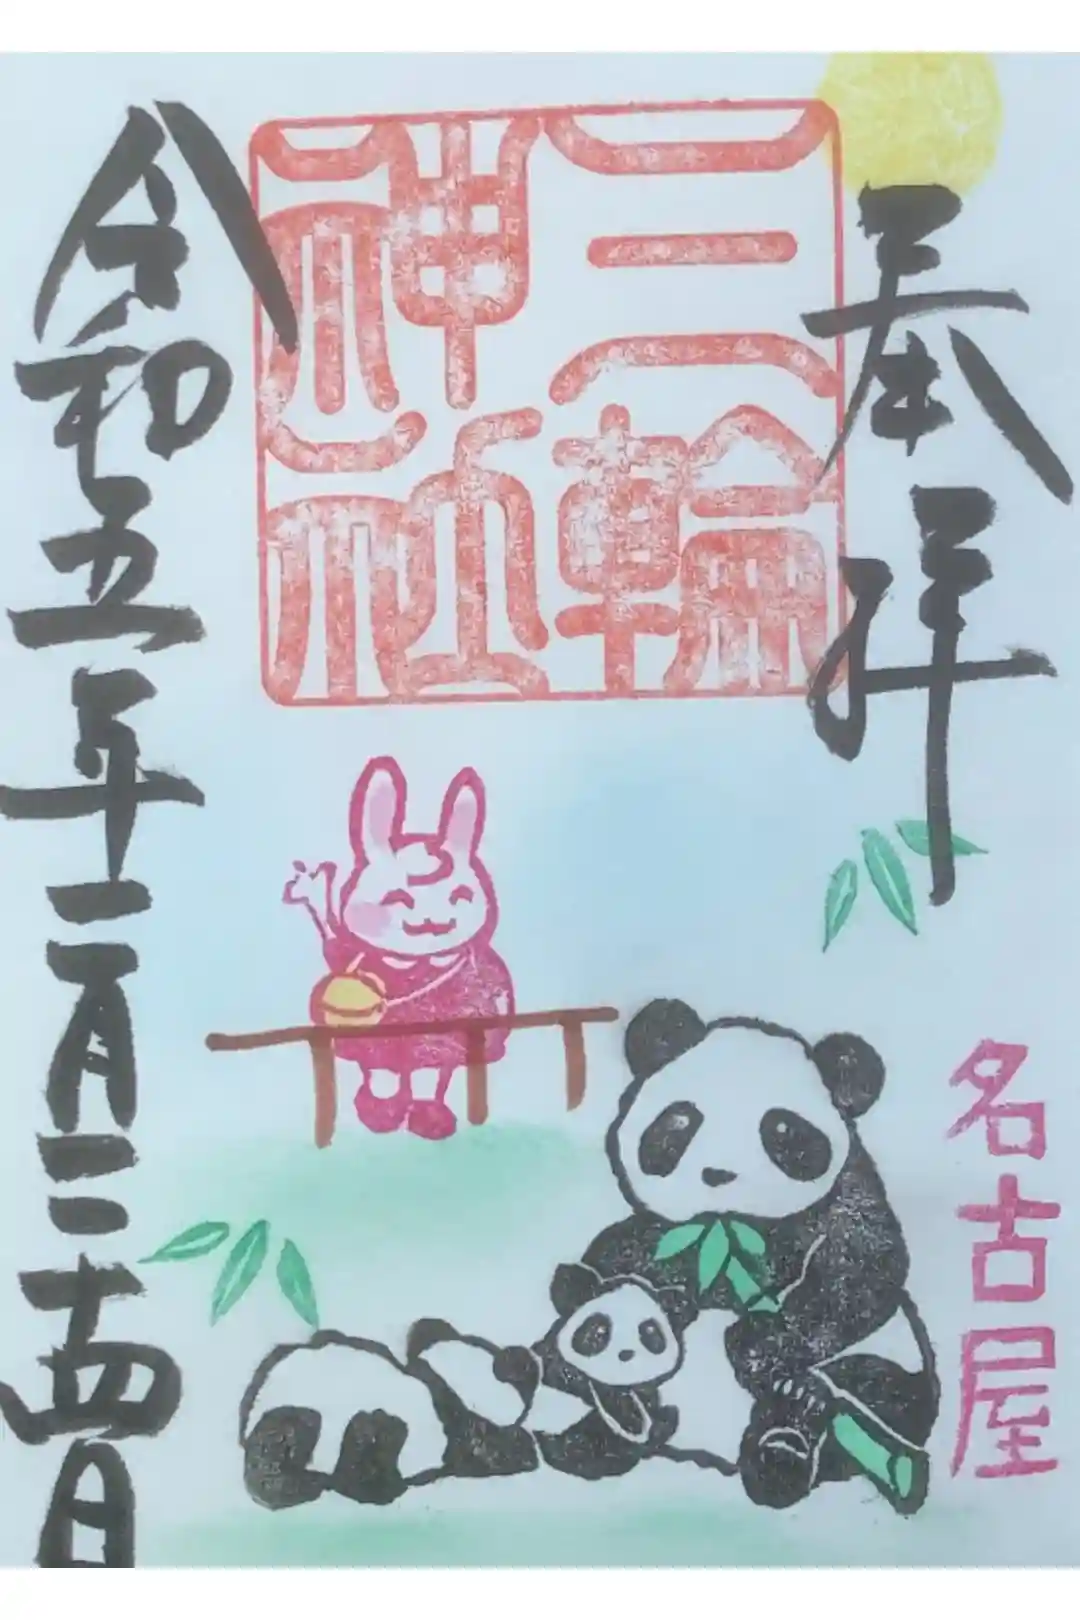 奉拝
名古屋
三輪
神社
令和五年一月二十四日